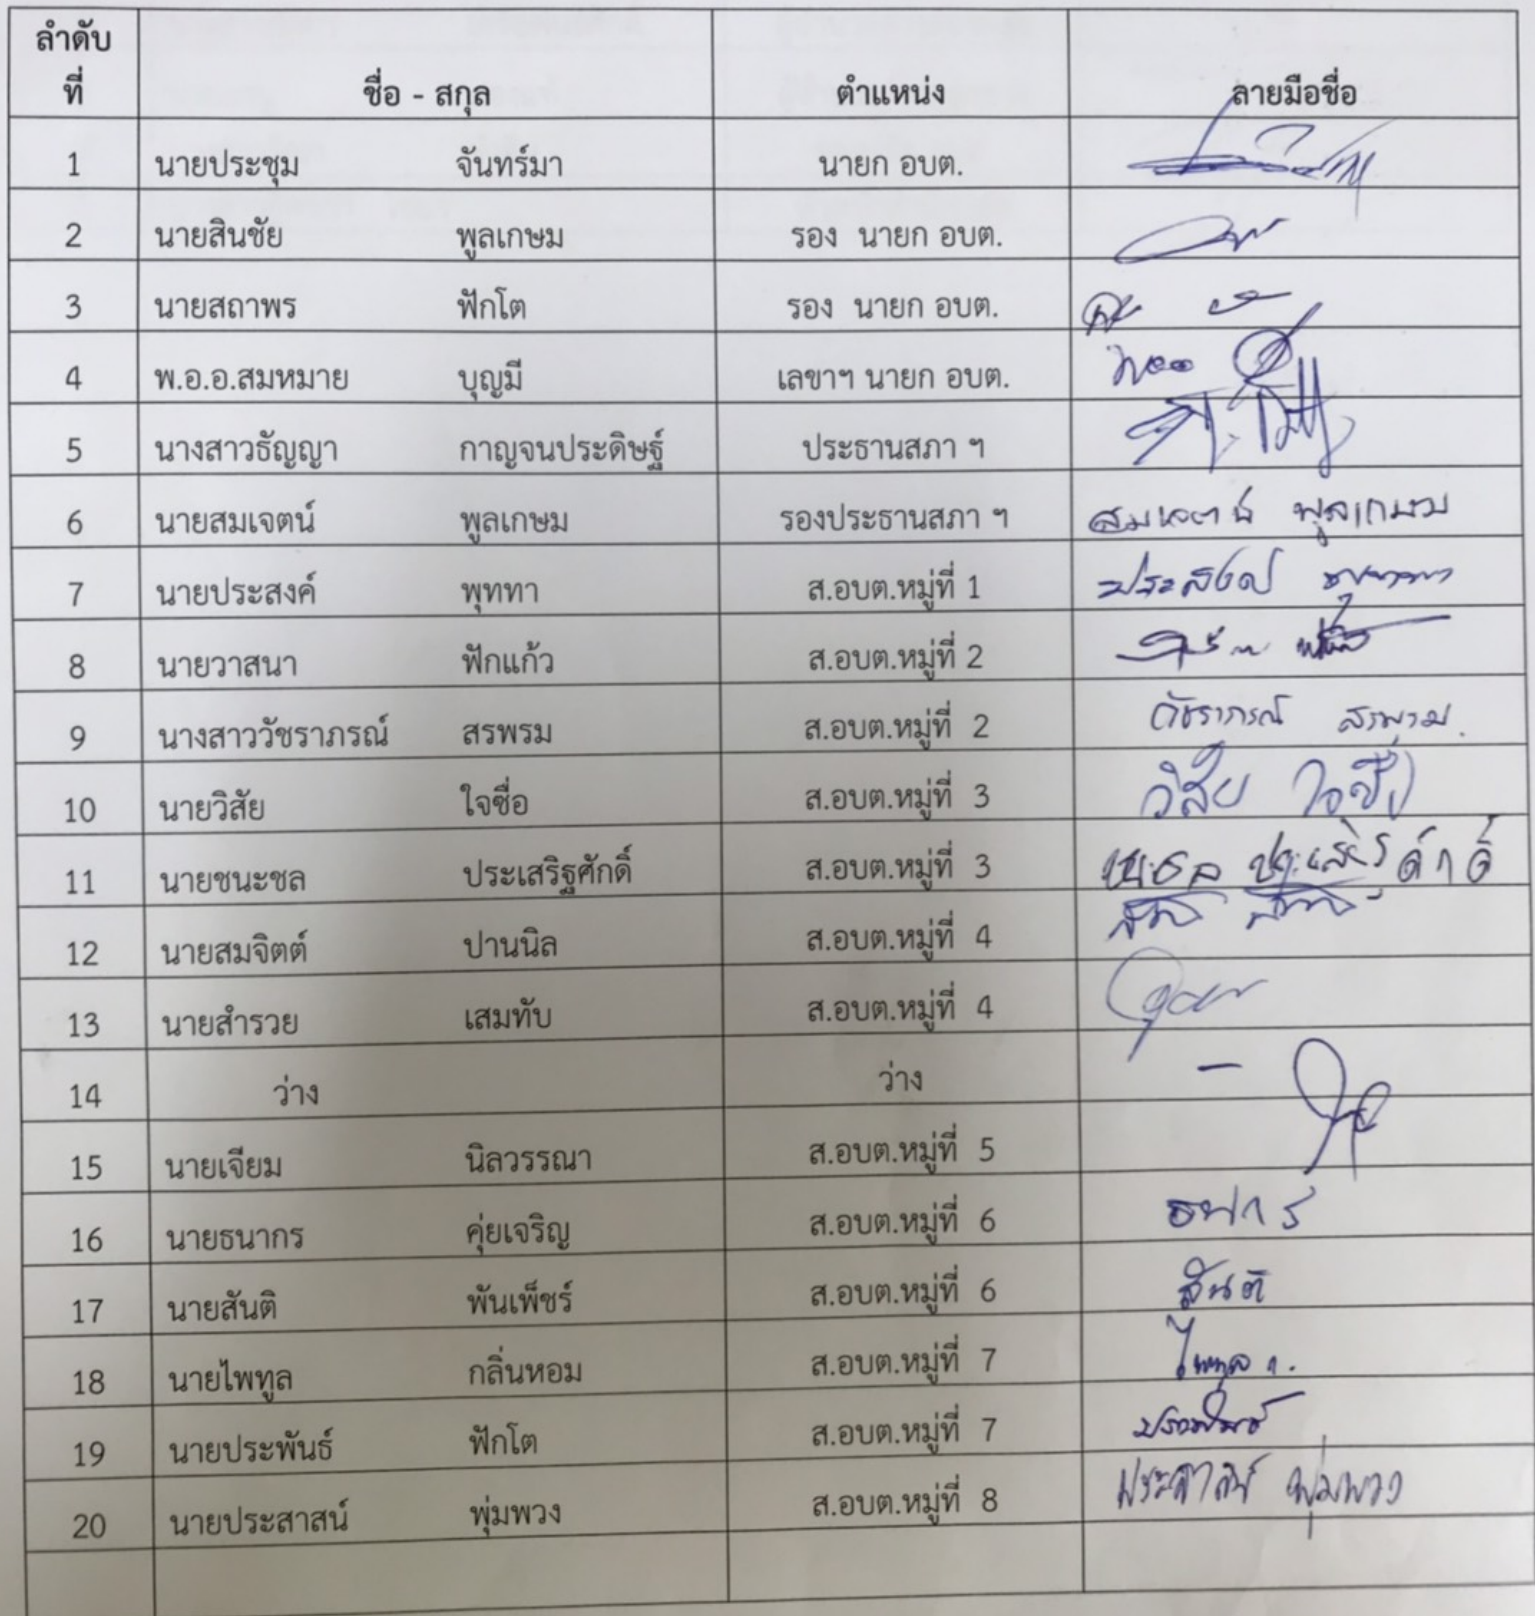 ลำดับ
ที่ ชื่อ - สกุล ตำแหน่ง ลายมือชื่อ
1 นายประชุม จันทร์มา นายก อบต.
2 นายสินชัย พูลเกษม รอง นายก อบต.
3 นายสถาพร ฟักโต รอง นายก อบต.
4 พ.อ.อ.สมหมาย บุญมี เลขาฯ นายก อบต.
5 นางสาวธัญญา กาญจนประดิษฐ์ ประธานสภา ฯ
6 นายสมเจตน์ พูลเกษม รองประธานสภา ฯ สมเจตน์ พูลเกษม
7 นายประสงค์ พุททา ส.อบต.หมู่ที่ 1 ประสงค์
8 นายวาสนา ฟักแก้ว ส.อบต.หมู่ที่ 2
9 นางสาววัชราภรณ์ สรพรม ส.อบต.หมู่ที่ 2 วัชราภรณ์ สรพรม
10 นายวิสัย ใจซื่อ ส.อบต.หมู่ที่ 3 วิสัย ใจซื่อ
11 นายชนะชล ประเสริฐศักดิ์ ส.อบต.หมู่ที่ 3
12 นายสมจิตต์ ปานนิล ส.อบต.หมู่ที่ 4
13 นายสำรวย เสมทับ ส.อบต.หมู่ที่ 4
14 ว่าง ว่าง -
15 นายเจียม นิลวรรณา ส.อบต.หมู่ที่ 5
16 นายธนากร คุ่ยเจริญ ส.อบต.หมู่ที่ 6 ธนากร
17 นายสันติ พันเพ็ชร์ ส.อบต.หมู่ที่ 6 สันติ
18 นายไพทูล กลิ่นหอม ส.อบต.หมู่ที่ 7 ไพทูล ก.
19 นายประพันธ์ ฟักโต ส.อบต.หมู่ที่ 7 ประพันธ์
20 นายประสาสน์ พุ่มพวง ส.อบต.หมู่ที่ 8 ประสาสน์ พุ่มพวง